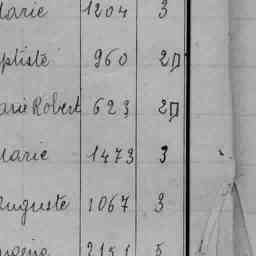 Marie 1204 3
ptiste 960 2
arie Robert 623 2
Marie 1473 3
Auguste 1067 3
2151 5